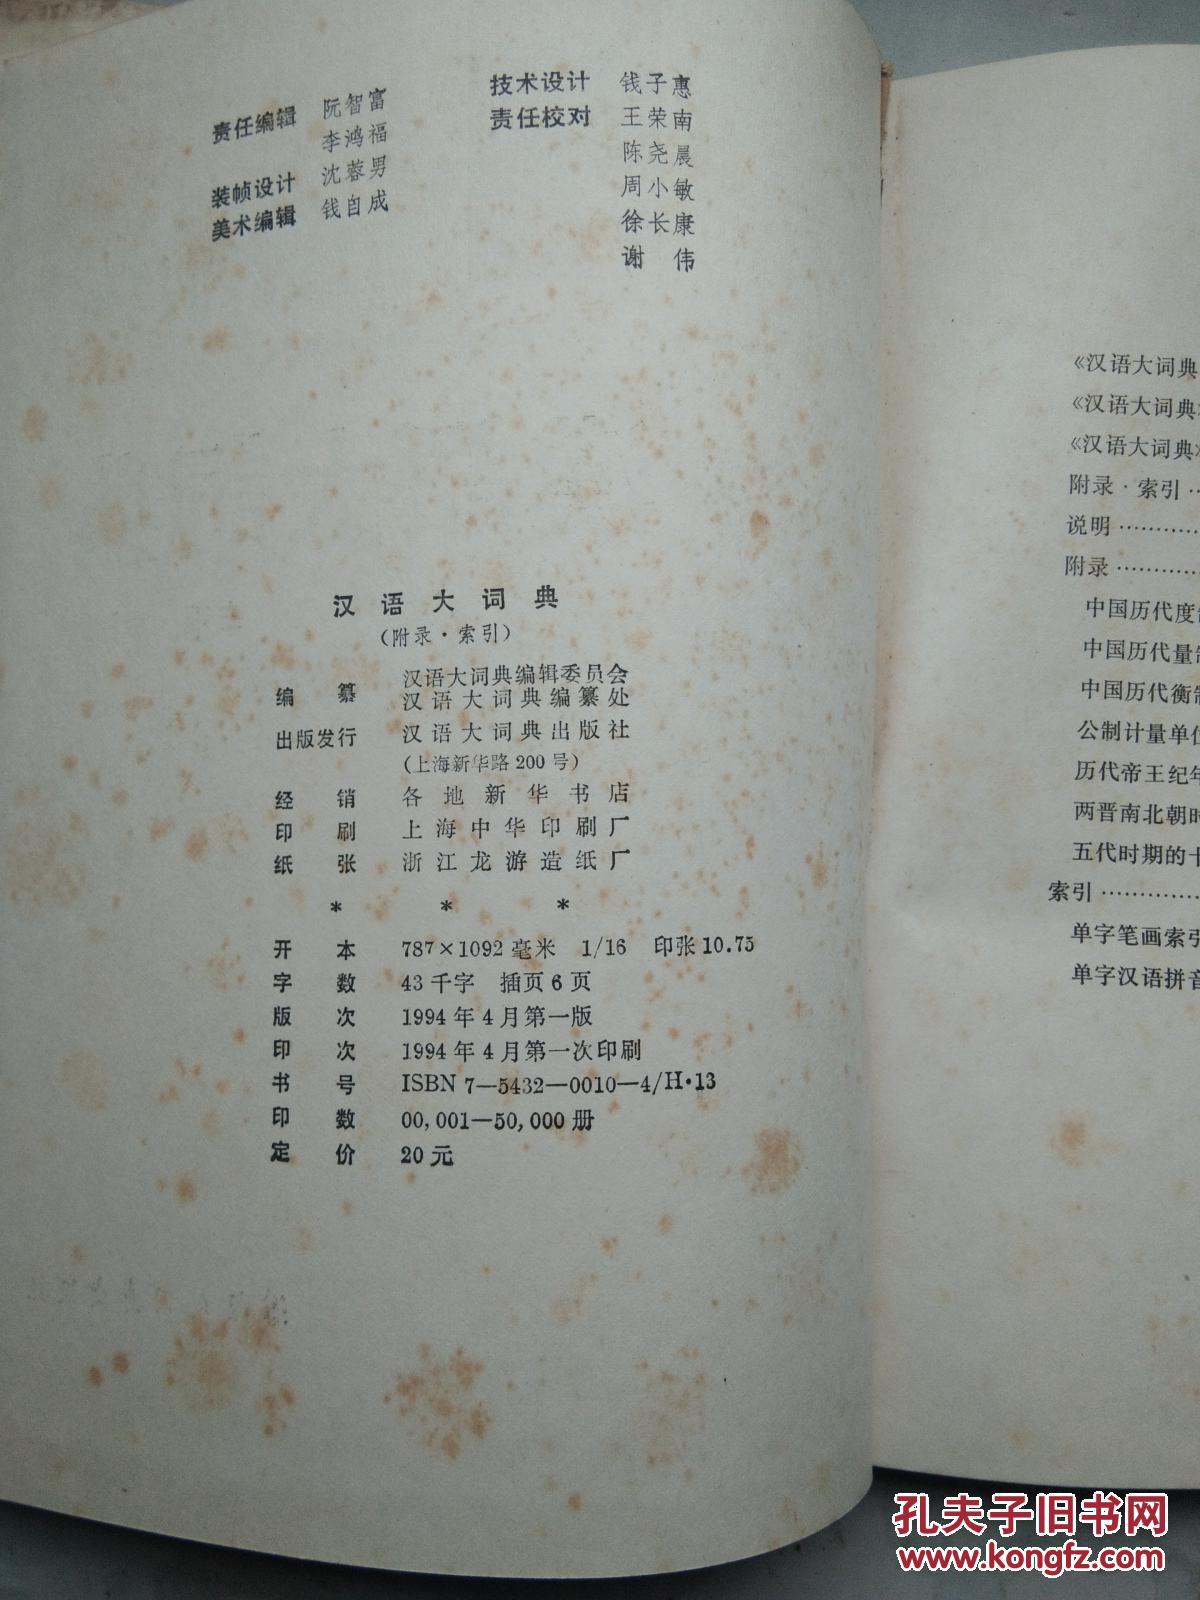 责任编辑 阮智富
李鸿福
装帧设计 沈蓉男
美术编辑 钱自成
技术设计 钱子惠
责任校对 王荣南
陈尧晨
周小敏
徐长康
谢 伟
汉语大词典
(附录·索引)
编 纂 汉语大词典编辑委员会
汉语大词典编纂处
出版发行 汉语大词典出版社
(上海新华路200号)
经 销 各地新华书店
印 刷 上海中华印刷厂
纸 张 浙江龙游造纸厂
* * *
开 本 787×1092毫米 1/16 印张10.75
字 数 43千字 插页6页
版 次 1994年4月第一版
印 次 1994年4月第一次印刷
书 号 ISBN 7—5432—0010—4/H·13
印 数 00,001—50,000册
定 价 20元
《汉语大词典
《汉语大词典》
《汉语大词典》
附录·索引……
说明…………
附录…………
中国历代度制
中国历代量制
中国历代衡制
公制计量单位
历代帝王纪年
两晋南北朝时
五代时期的十
索引…………
单字笔画索引
单字汉语拼音
孔夫子旧书网
www.kongfz.com